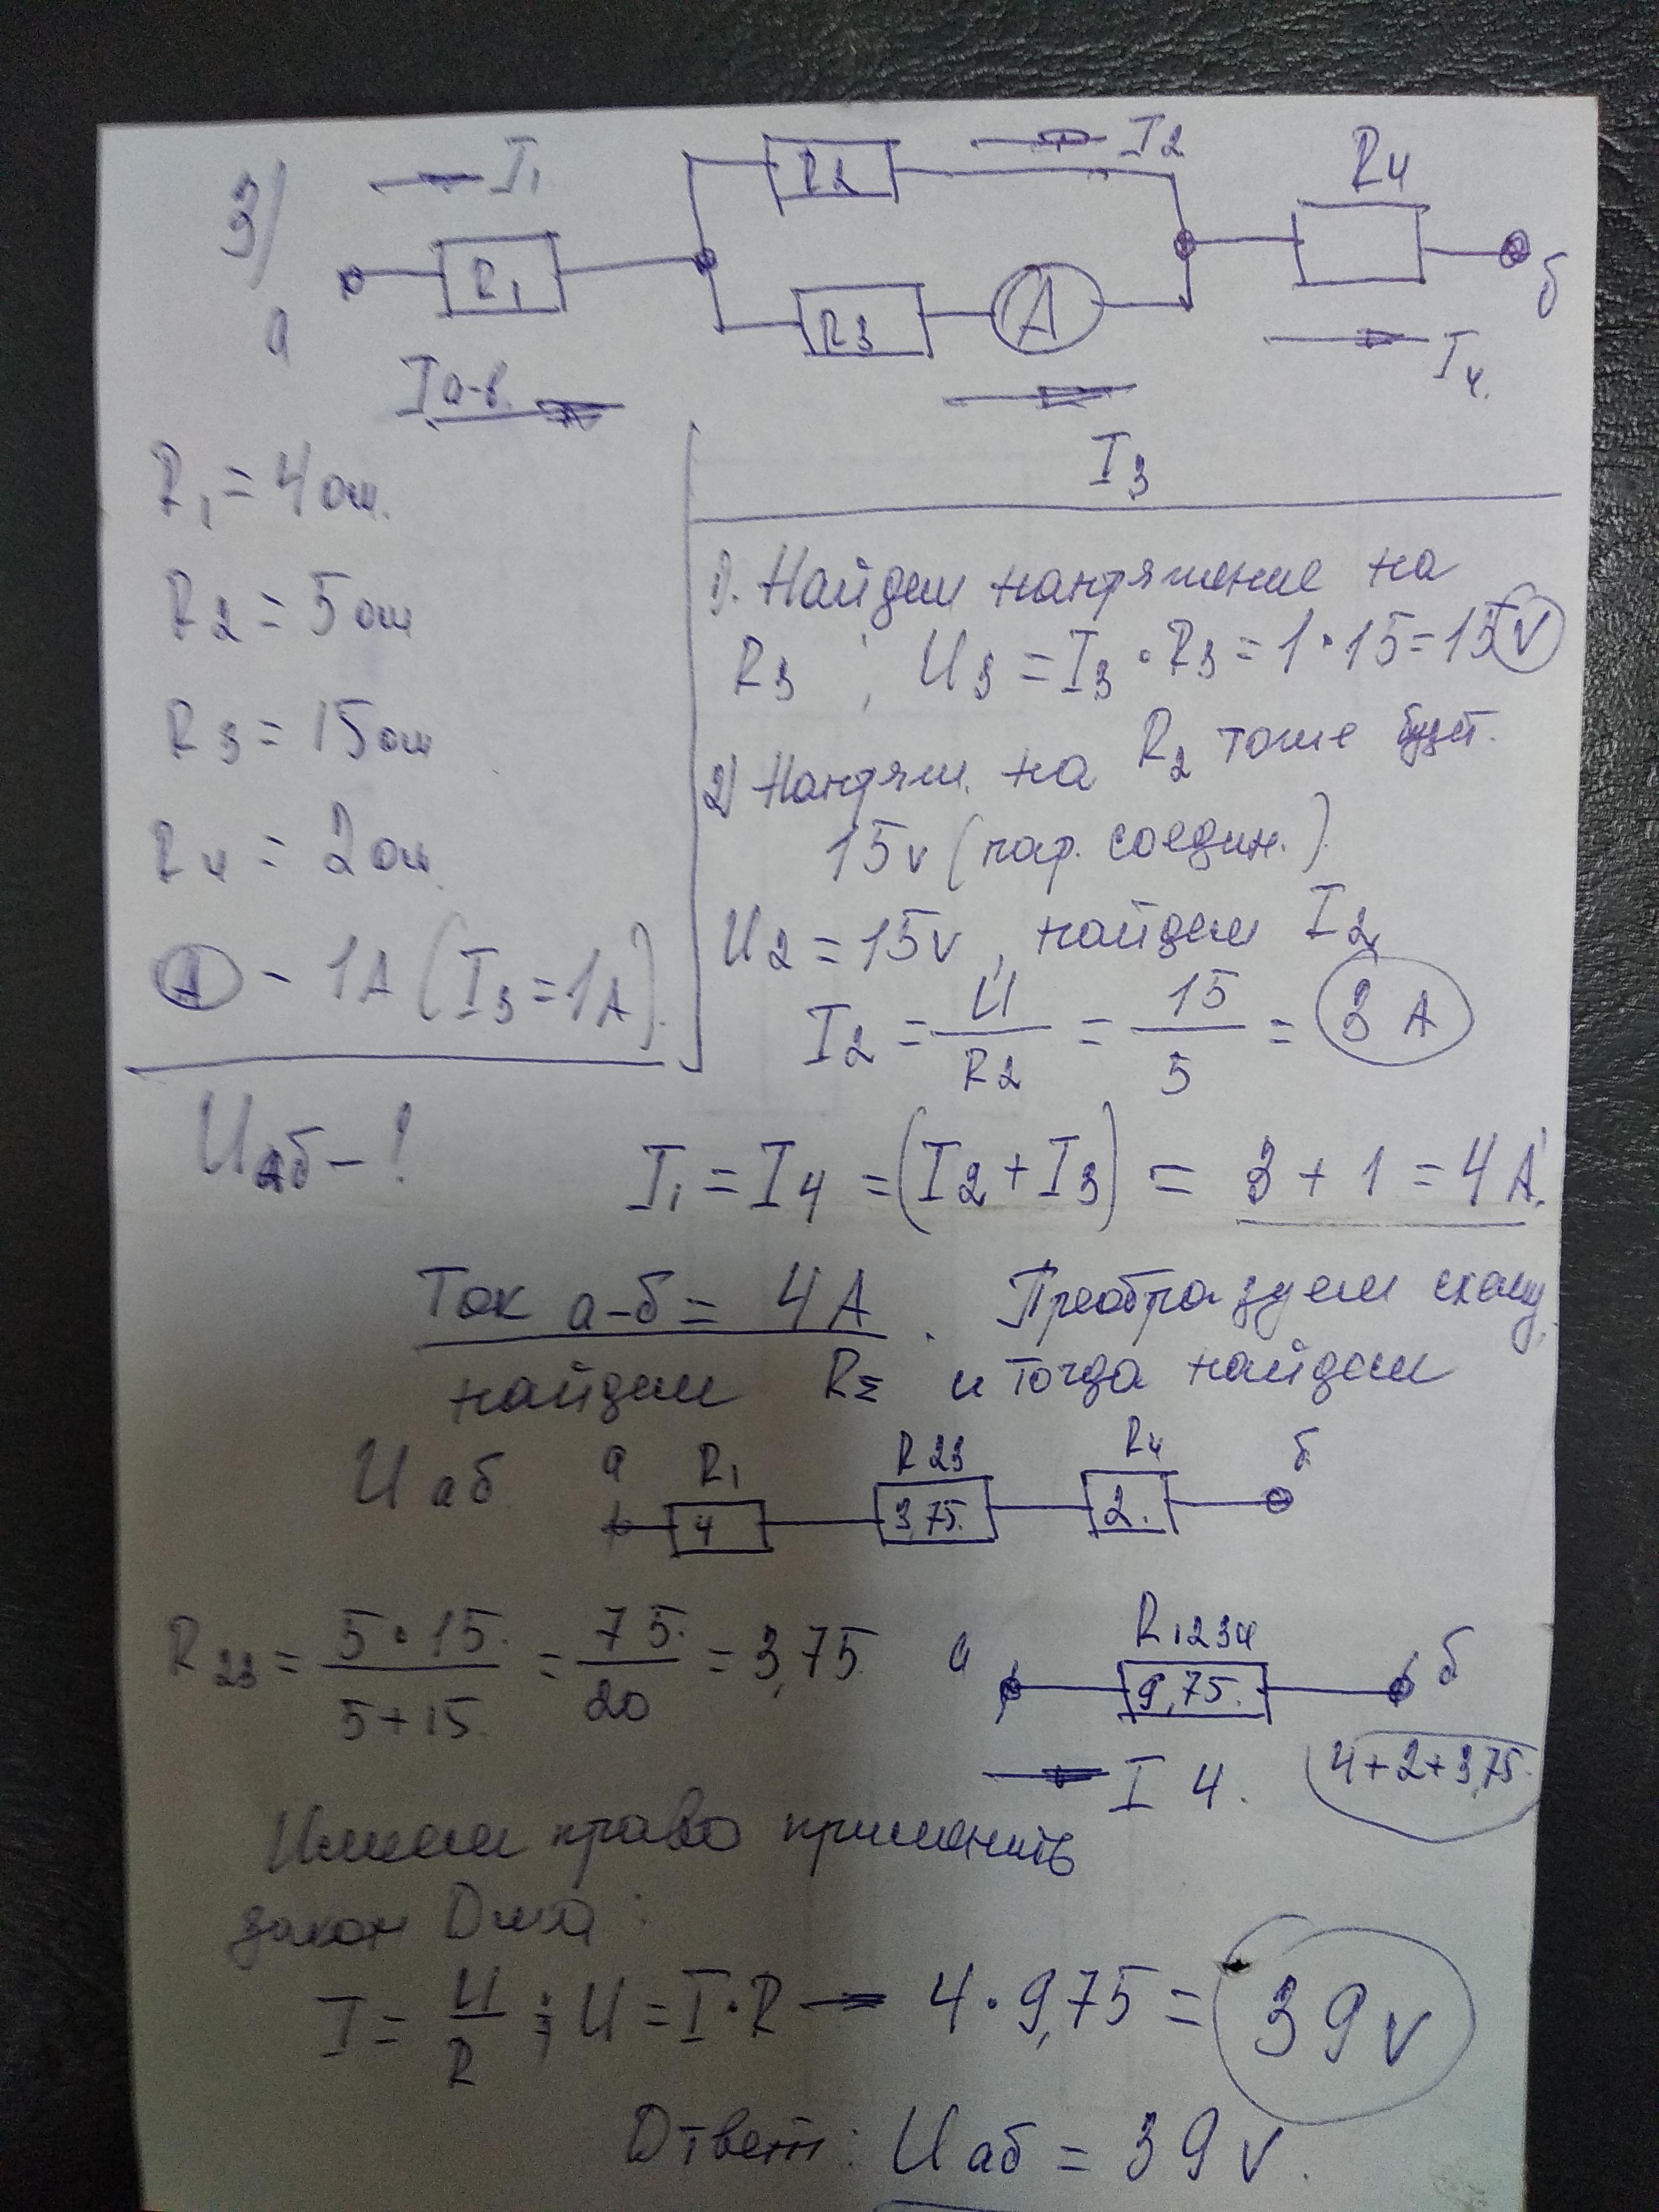 3/
I1
R1
R2
I2
R4
а
R3
A
б
I а-в.
I3
I4.
R1 = 4 ом.
R2 = 5 ом
R3 = 15 ом
R4 = 2 ом.
A - 1A (I3 = 1A).
Uаб - !
1). Найдем напряжение на
R3 ; U3 = I3 · R3 = 1 · 15 = 15 V
2) Напряж. на R2 тоже будет.
15 v (пар. соедин.)
U2 = 15 v, найдем I2
I2 = U/R2 = 15/5 = 3 A
I1 = I4 = (I2 + I3) = 3 + 1 = 4 A.
Ток а-б = 4 A. Преобразуем схему,
найдем RΣ и тогда найдем
U аб.
а R1 R23 R4 б
4 3,75. 2.
R23 = 5 · 15/5 + 15 = 75/20 = 3,75.
а R1234 б
9,75.
I 4.
4 + 2 + 3,75.
Имеем право применить
закон Ома:
I = U/R ; U = I · R — 4 · 9,75 = 39 v
Ответ: U аб = 39 v.